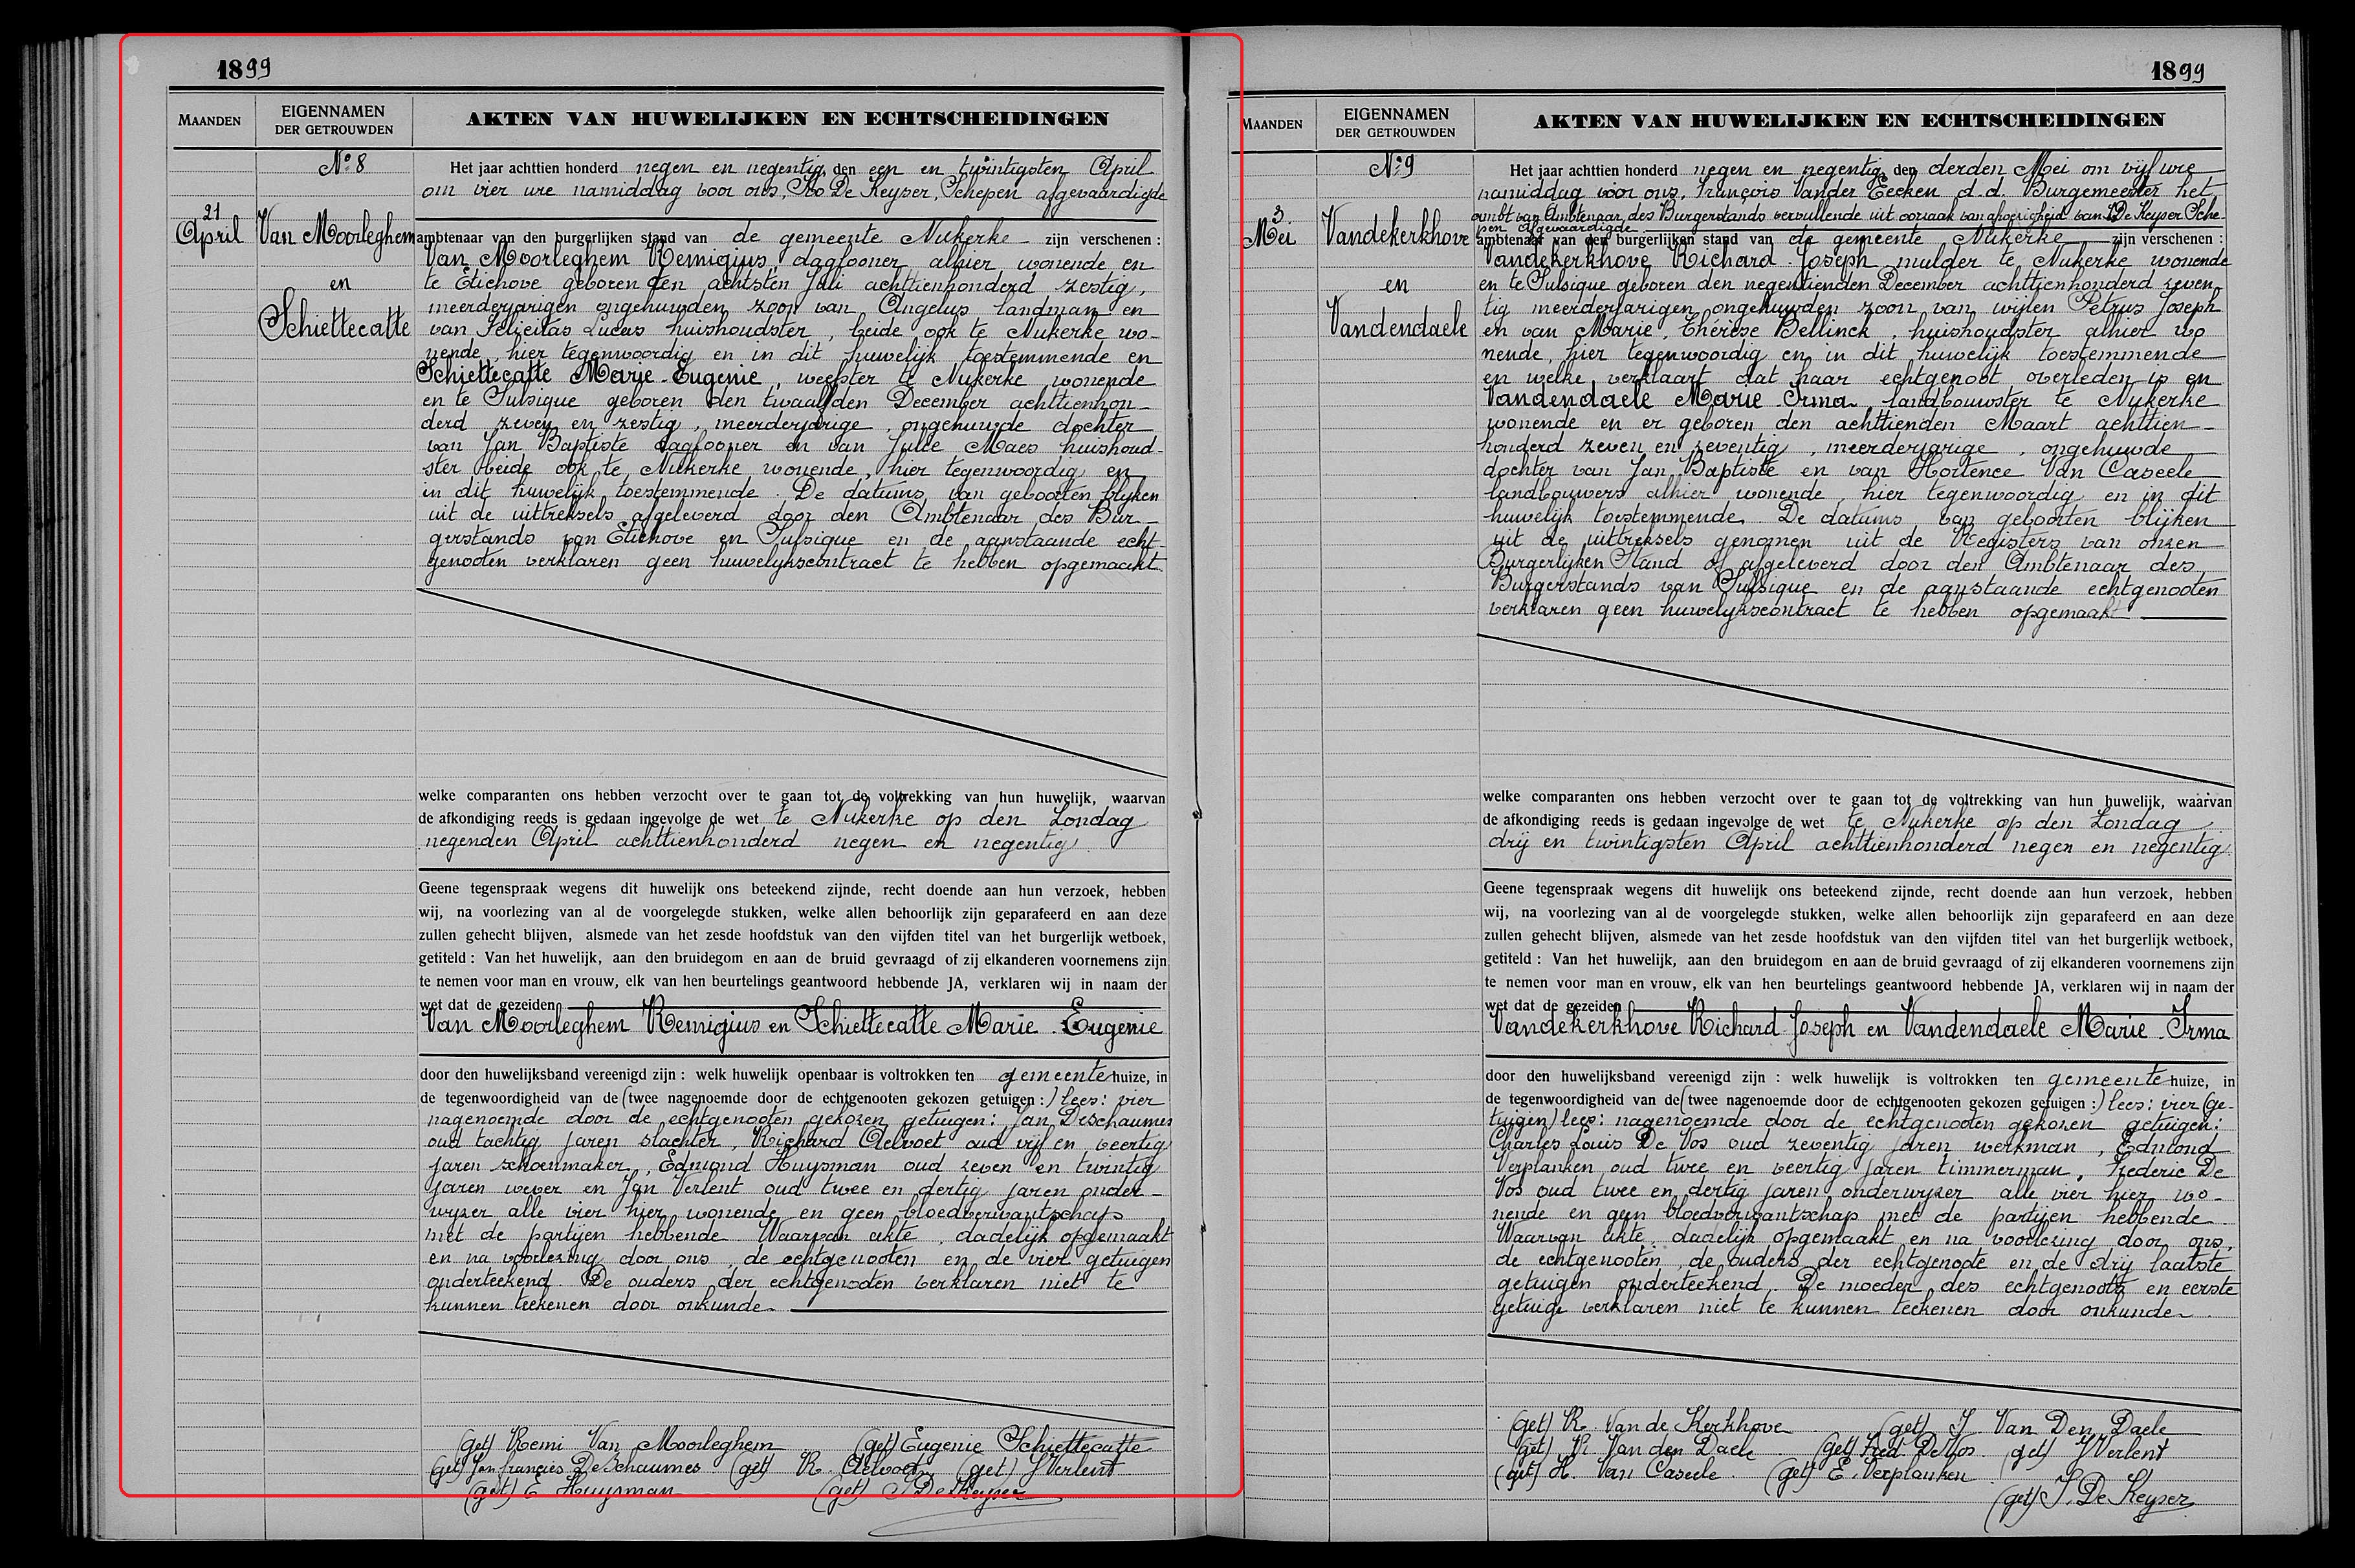 1899
MAANDEN
EIGENNAMEN
DER GETROUWDEN
AKTEN VAN HUWELIJKEN EN ECHTSCHEIDINGEN
No 8
Het jaar achttien honderd negen en negentig, den een en twintigsten April
om vier ure namiddag voor ons, De Keyser, Schepen afgevaardigde
21
April
Van Moorleghem
en
Schiettecatte
ambtenaar van den burgerlijken stand van de gemeente Nukerke zijn verschenen :
Van Moorleghem Remigius, daglooner alhier wonende en
te Etichove geboren den achtsten Juli achttienhonderd zestig,
meerderjarigen ongehuwden zoon van Angelus landman en
van Felicitas Lucas huishoudster, beide ook te Nukerke wo-
nende, hier tegenwoordig en in dit huwelijk toestemmende en
Schiettecatte Marie-Eugenie, weefster te Nukerke wonende
en te Sulsique geboren den twaalfden December achttienhon-
derd zeven en zestig, meerderjarige, ongehuwde dochter
van Jan Baptiste daglooner en van Julie Maes huishoud-
ster beide ook te Nukerke wonende, hier tegenwoordig en
in dit huwelijk toestemmende. De datums van geboorten blijken
uit de uittreksels afgeleverd door den Ambtenaar des Bur-
gerstands van Etichove en Sulsique en de aanstaande echt-
genooten verklaren geen huwelykscontract te hebben opgemaakt.
welke comparanten ons hebben verzocht over te gaan tot de voltrekking van hun huwelijk, waarvan
de afkondiging reeds is gedaan ingevolge de wet te Nukerke op den Zondag
negenden April achttienhonderd negen en negentig
Geene tegenspraak wegens dit huwelijk ons beteekend zijnde, recht doende aan hun verzoek, hebben
wij, na voorlezing van al de voorgelegde stukken, welke allen behoorlijk zijn geparafeerd en aan deze
zullen gehecht blijven, alsmede van het zesde hoofdstuk van den vijfden titel van het burgerlijk wetboek,
getiteld : Van het huwelijk, aan den bruidegom en aan de bruid gevraagd of zij elkanderen voornemens zijn
te nemen voor man en vrouw, elk van hen beurtelings geantwoord hebbende JA, verklaren wij in naam der
wet dat de gezeiden
Van Moorleghem Remigius en Schiettecatte Marie-Eugenie
door den huwelijksband vereenigd zijn : welk huwelijk openbaar is voltrokken ten gemeente huize, in
de tegenwoordigheid van de (twee nagenoemde door de echtgenooten gekozen getuigen :) lees: vier
nagenoemde door de echtgenooten gekozen getuigen: Jan Deschaumes
oud tachtig jaren slachter, Richard Aelvoet oud vijf en veertig
jaren schoenmaker, Edmond Huysman oud zeven en twintig
jaren wever en Jan Verlent oud twee en dertig jaren onder-
wyzer alle vier hier wonende en geen bloedverwantschap
met de partijen hebbende. Waarvan akte, dadelijk opgemaakt
en na voorlezing door ons, de echtgenooten en de vier getuigen
onderteekend. De ouders der echtgenooten verklaren niet te
kunnen teekenen door onkunde.
(get) Remi Van Moorleghem (get) Eugenie Schiettecatte
(get) Jan françies Deschaumes (get) R. Aelvoet (get) J Verlent
(get) E Huysman (get) J De Keyser
1899
MAANDEN
EIGENNAMEN
DER GETROUWDEN
AKTEN VAN HUWELIJKEN EN ECHTSCHEIDINGEN
No 9
Het jaar achttien honderd negen en negentig, den derden Mei om vijf ure
namiddag voor ons, François Vander Eecken d.d. Burgemeester het
ambt van Ambtenaar des Burgerstands vervullende uit oorzaak van afwezigheid van De Keyser Sche-
pen afgevaardigde
3
Mei
Vandekerkhove
en
Vandendaele
ambtenaar van den burgerlijken stand van de gemeente Nukerke zijn verschenen :
Vandekerkhove Richard-Joseph mulder te Nukerke wonende
en te Sulsique geboren den negentienden December achttienhonderd zeven-
tig meerderjarigen ongehuwden zoon van wijlen Petrus Joseph
en van Marie Thérèse Bellinck, huishoudster alhier wo
nende, hier tegenwoordig en in dit huwelijk toestemmende
en welke verklaart dat haar echtgenoot overleden is en
Vandendaele Marie Irma, landbouwster te Nukerke
wonende en er geboren den achttienden Maart achttien-
honderd zeven en zeventig, meerderjarige, ongehuwde
dochter van Jan Baptiste en van Hortence Van Caseele
landbouwers alhier wonende, hier tegenwoordig en in dit
huwelijk toestemmende. De datums van geboorten blijken
uit de uittreksels genomen uit de Registers van onzen
Burgerlyken Stand of afgeleverd door den Ambtenaar des
Burgerstands van Sulsique en de aanstaande echtgenooten
verklaren geen huwelykscontract te hebben opgemaakt
welke comparanten ons hebben verzocht over te gaan tot de voltrekking van hun huwelijk, waarvan
de afkondiging reeds is gedaan ingevolge de wet te Nukerke op den Zondag
drij en twintigsten April achttienhonderd negen en negentig
Geene tegenspraak wegens dit huwelijk ons beteekend zijnde, recht doende aan hun verzoek, hebben
wij, na voorlezing van al de voorgelegde stukken, welke allen behoorlijk zijn geparafeerd en aan deze
zullen gehecht blijven, alsmede van het zesde hoofdstuk van den vijfden titel van het burgerlijk wetboek,
getiteld : Van het huwelijk, aan den bruidegom en aan de bruid gevraagd of zij elkanderen voornemens zijn
te nemen voor man en vrouw, elk van hen beurtelings geantwoord hebbende JA, verklaren wij in naam der
wet dat de gezeiden
Vandekerkhove Richard-Joseph en Vandendaele Marie-Irma
door den huwelijksband vereenigd zijn : welk huwelijk is voltrokken ten gemeente huize, in
de tegenwoordigheid van de (twee nagenoemde door de echtgenooten gekozen getuigen :) lees: vier (ge-
tuigen) lees: nagenoemde door de echtgenooten gekozen getuigen:
Charles Louis De Vos oud zeventig jaren werkman, Edmond
Verplanken oud twee en veertig jaren timmerman, Frederic De
Vos oud twee en dertig jaren onderwyzer alle vier hier wo-
nende en geen bloedverwantschap met de partijen hebbende.
Waarvan akte, dadelijk opgemaakt en na voorlezing door ons,
de echtgenooten, de ouders der echtgenote en de drij laatste
getuigen onderteekend. De moeder des echtgenoots en eerste
getuige verklaren niet te kunnen teekenen door onkunde.
(get) R. Van de Kerkhove (get) I. Van Den Daele
(get) R. Van den Daele (get) Fred. De Vos (get) J Verlent
(get) H. Van Caseele (get) E. Verplanken
(get) J. De Keyser